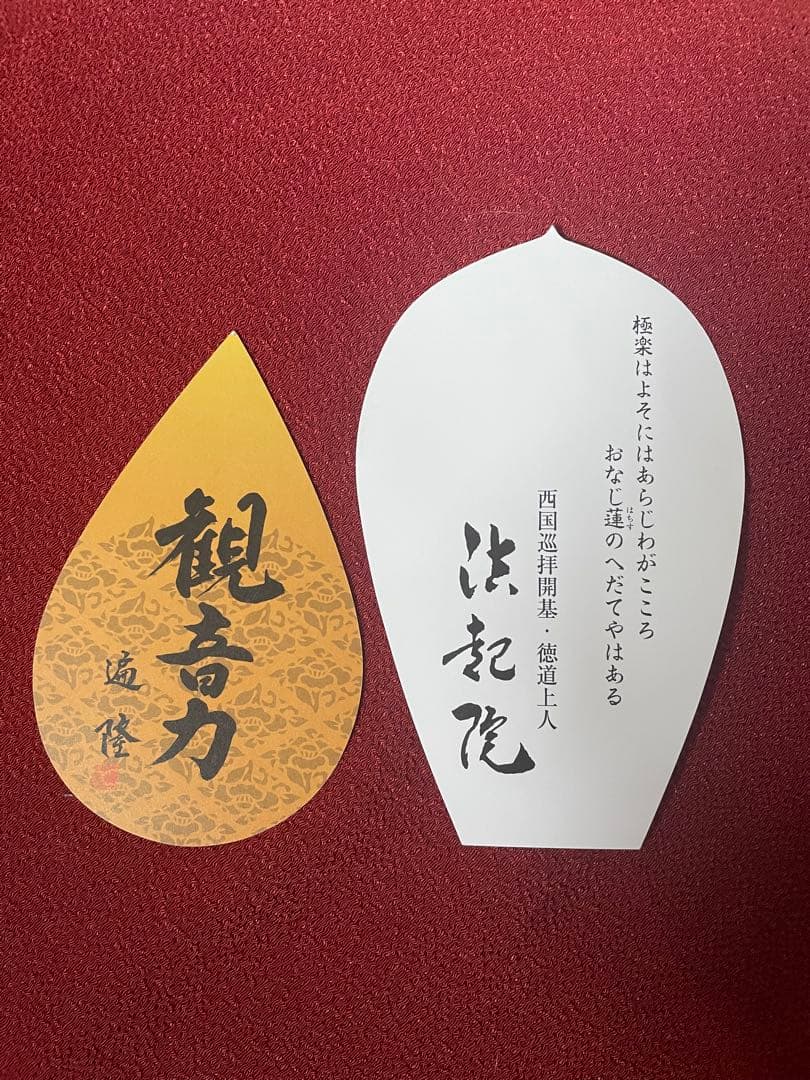 極楽はよそにはあらじわがこころ
おなじ蓮のへだてやはある
はちす
西国巡拝開基・徳道上人
法起院
観音力
遍隆